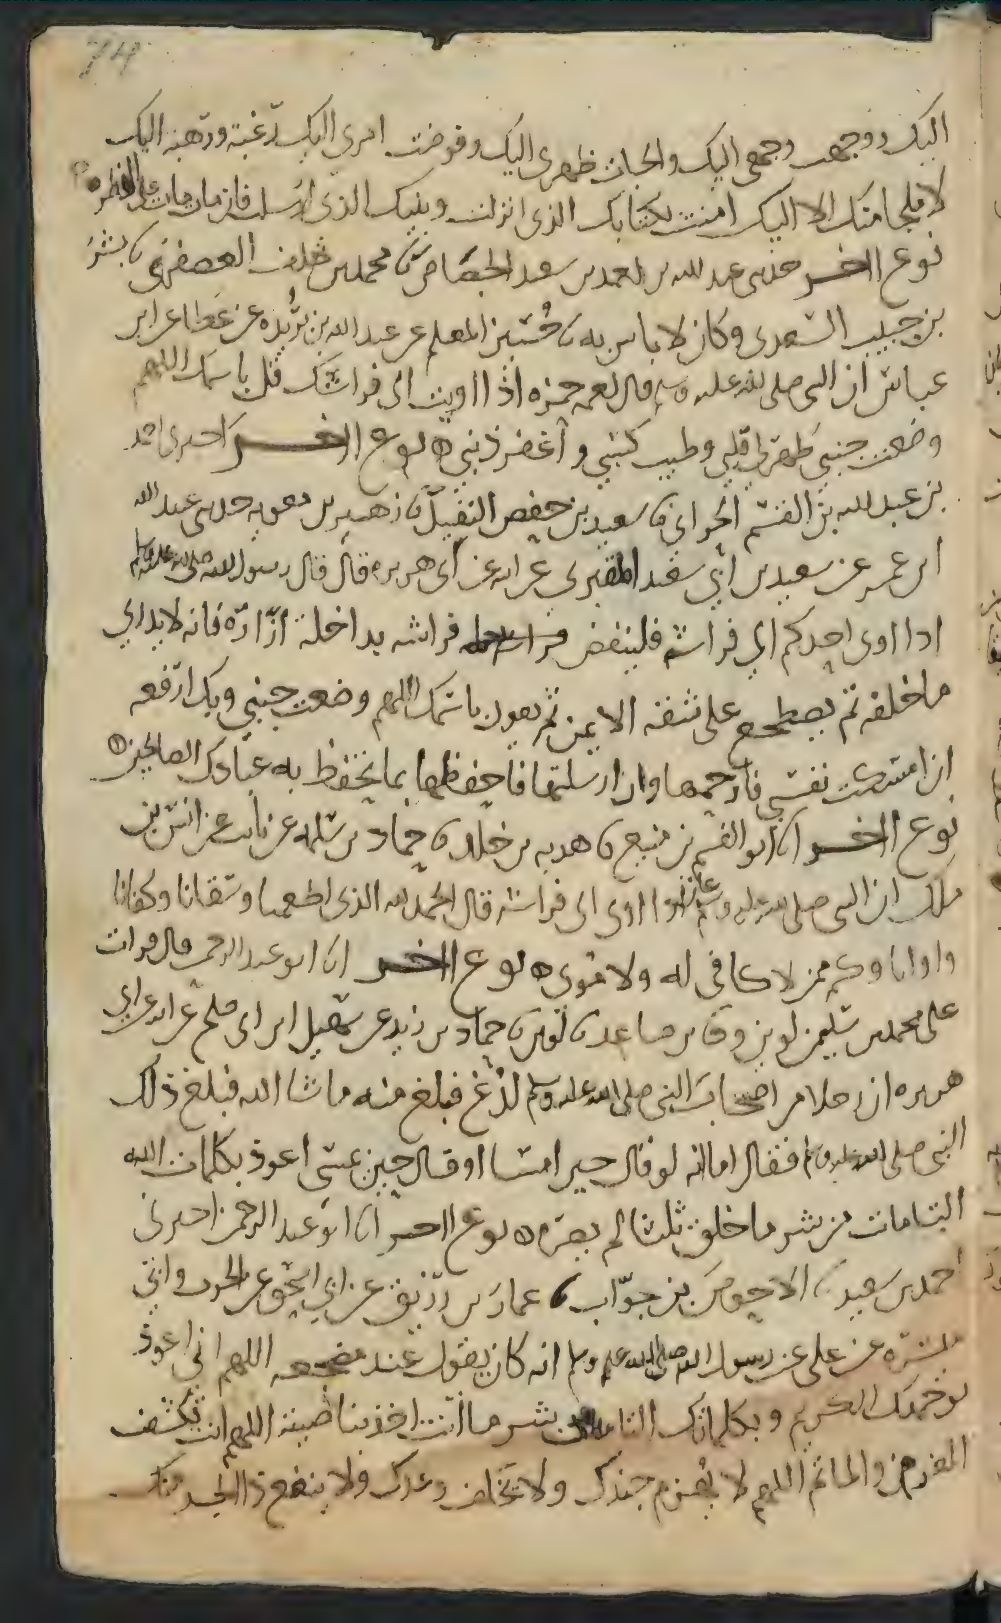 74
اليك ووجهت وجهي اليك والجات ظهري اليك وفوضت امري اليك رغبة ورهبة اليك
لا ملجا منك الا اليك امنت بكتابك الذي انزلت ونبيك الذي ارسلت فان مات مات على الفطرة
نوع اخر حدثني عبد الله بن احمد بن سعيد الجصاص ثنا محمد بن خلف العصفري ثنا بشر
بن حبيب السعدي وكان لا باس به ثنا حسين المعلم عن عبد الله بن بريده عن عطا عن ابن
عباس ان النبي صلى الله عليه وسلم قال لعمه حمزه اذا اويت الى فراشك قل باسمك اللهم
وضعت جنبي طهر لي قلبي وطيب كسبي واغفر ذنبي ه نوع اخر اخبرني احمد
بن عبد الله بن القسم الحراني ثنا سعيد بن حفص النفيلي ثنا زهير بن معويه حدثني عبيد الله
ابن عمر عن سعيد بن ابي سعيد المقبري عن ابيه عن ابي هريره قال قال رسول الله صلى الله عليه وسلم
اذا اوى احدكم الى فراشه فلينفض فراشه بداخلة ازاره فانه لا يدري
ما خلفه ثم يضطجع على شقه الايمن ثم يقول باسمك اللهم وضعت جنبي وبك ارفعه
ان امسكت نفسي فارحمها وان ارسلتها فاحفظها بما تحفظ به عبادك الصالحين
نوع اخر انا ابو القسم بن منيع ثنا هدبه بن خالد ثنا حماد بن سلمه عن ثابت عن انس بن
ملك ان النبي صلى الله عليه وسلم كان اذا اوى الى فراشه قال الحمد لله الذي اطعمنا وسقانا وكفانا
واوانا وكم ممن لا كافي له ولا مووي ه نوع اخر انا ابو عبد الرحمن قال قرات
على محمد بن سليمن لوين وثنا ابن صاعد ثنا لوين ثنا حماد بن زيد عن سهيل ابن ابي صلح عن ابيه عن ابي
هريره ان رجلا من اصحاب النبي صلى الله عليه وسلم لدغ فبلغ منه ما شا الله فبلغ ذلك
النبي صلى الله عليه وسلم فقال اما انه لو قال حين امسا او قال حين يمسي اعوذ بكلمات الله
التامات من شر ما خلق ثلثا لم يضره ه نوع اخر انا ابو عبد الرحمن اخبرني
احمد بن سعيد ثنا الاحوص بن جوّاب ثنا عمار بن رزيق عن ابي اسحق عن الحرث وابي
ميسره عن علي عن رسول الله صلى الله عليه وسلم انه كان يقول عند مضجعه اللهم اني اعوذ
بوجهك الكريم وبكلماتك التامات من شر ما انت اخذ بناصيته اللهم انت تكشف
المغرم والماثم اللهم لا يهزم جندك ولا يخلف وعدك ولا ينفع ذا الجد منك